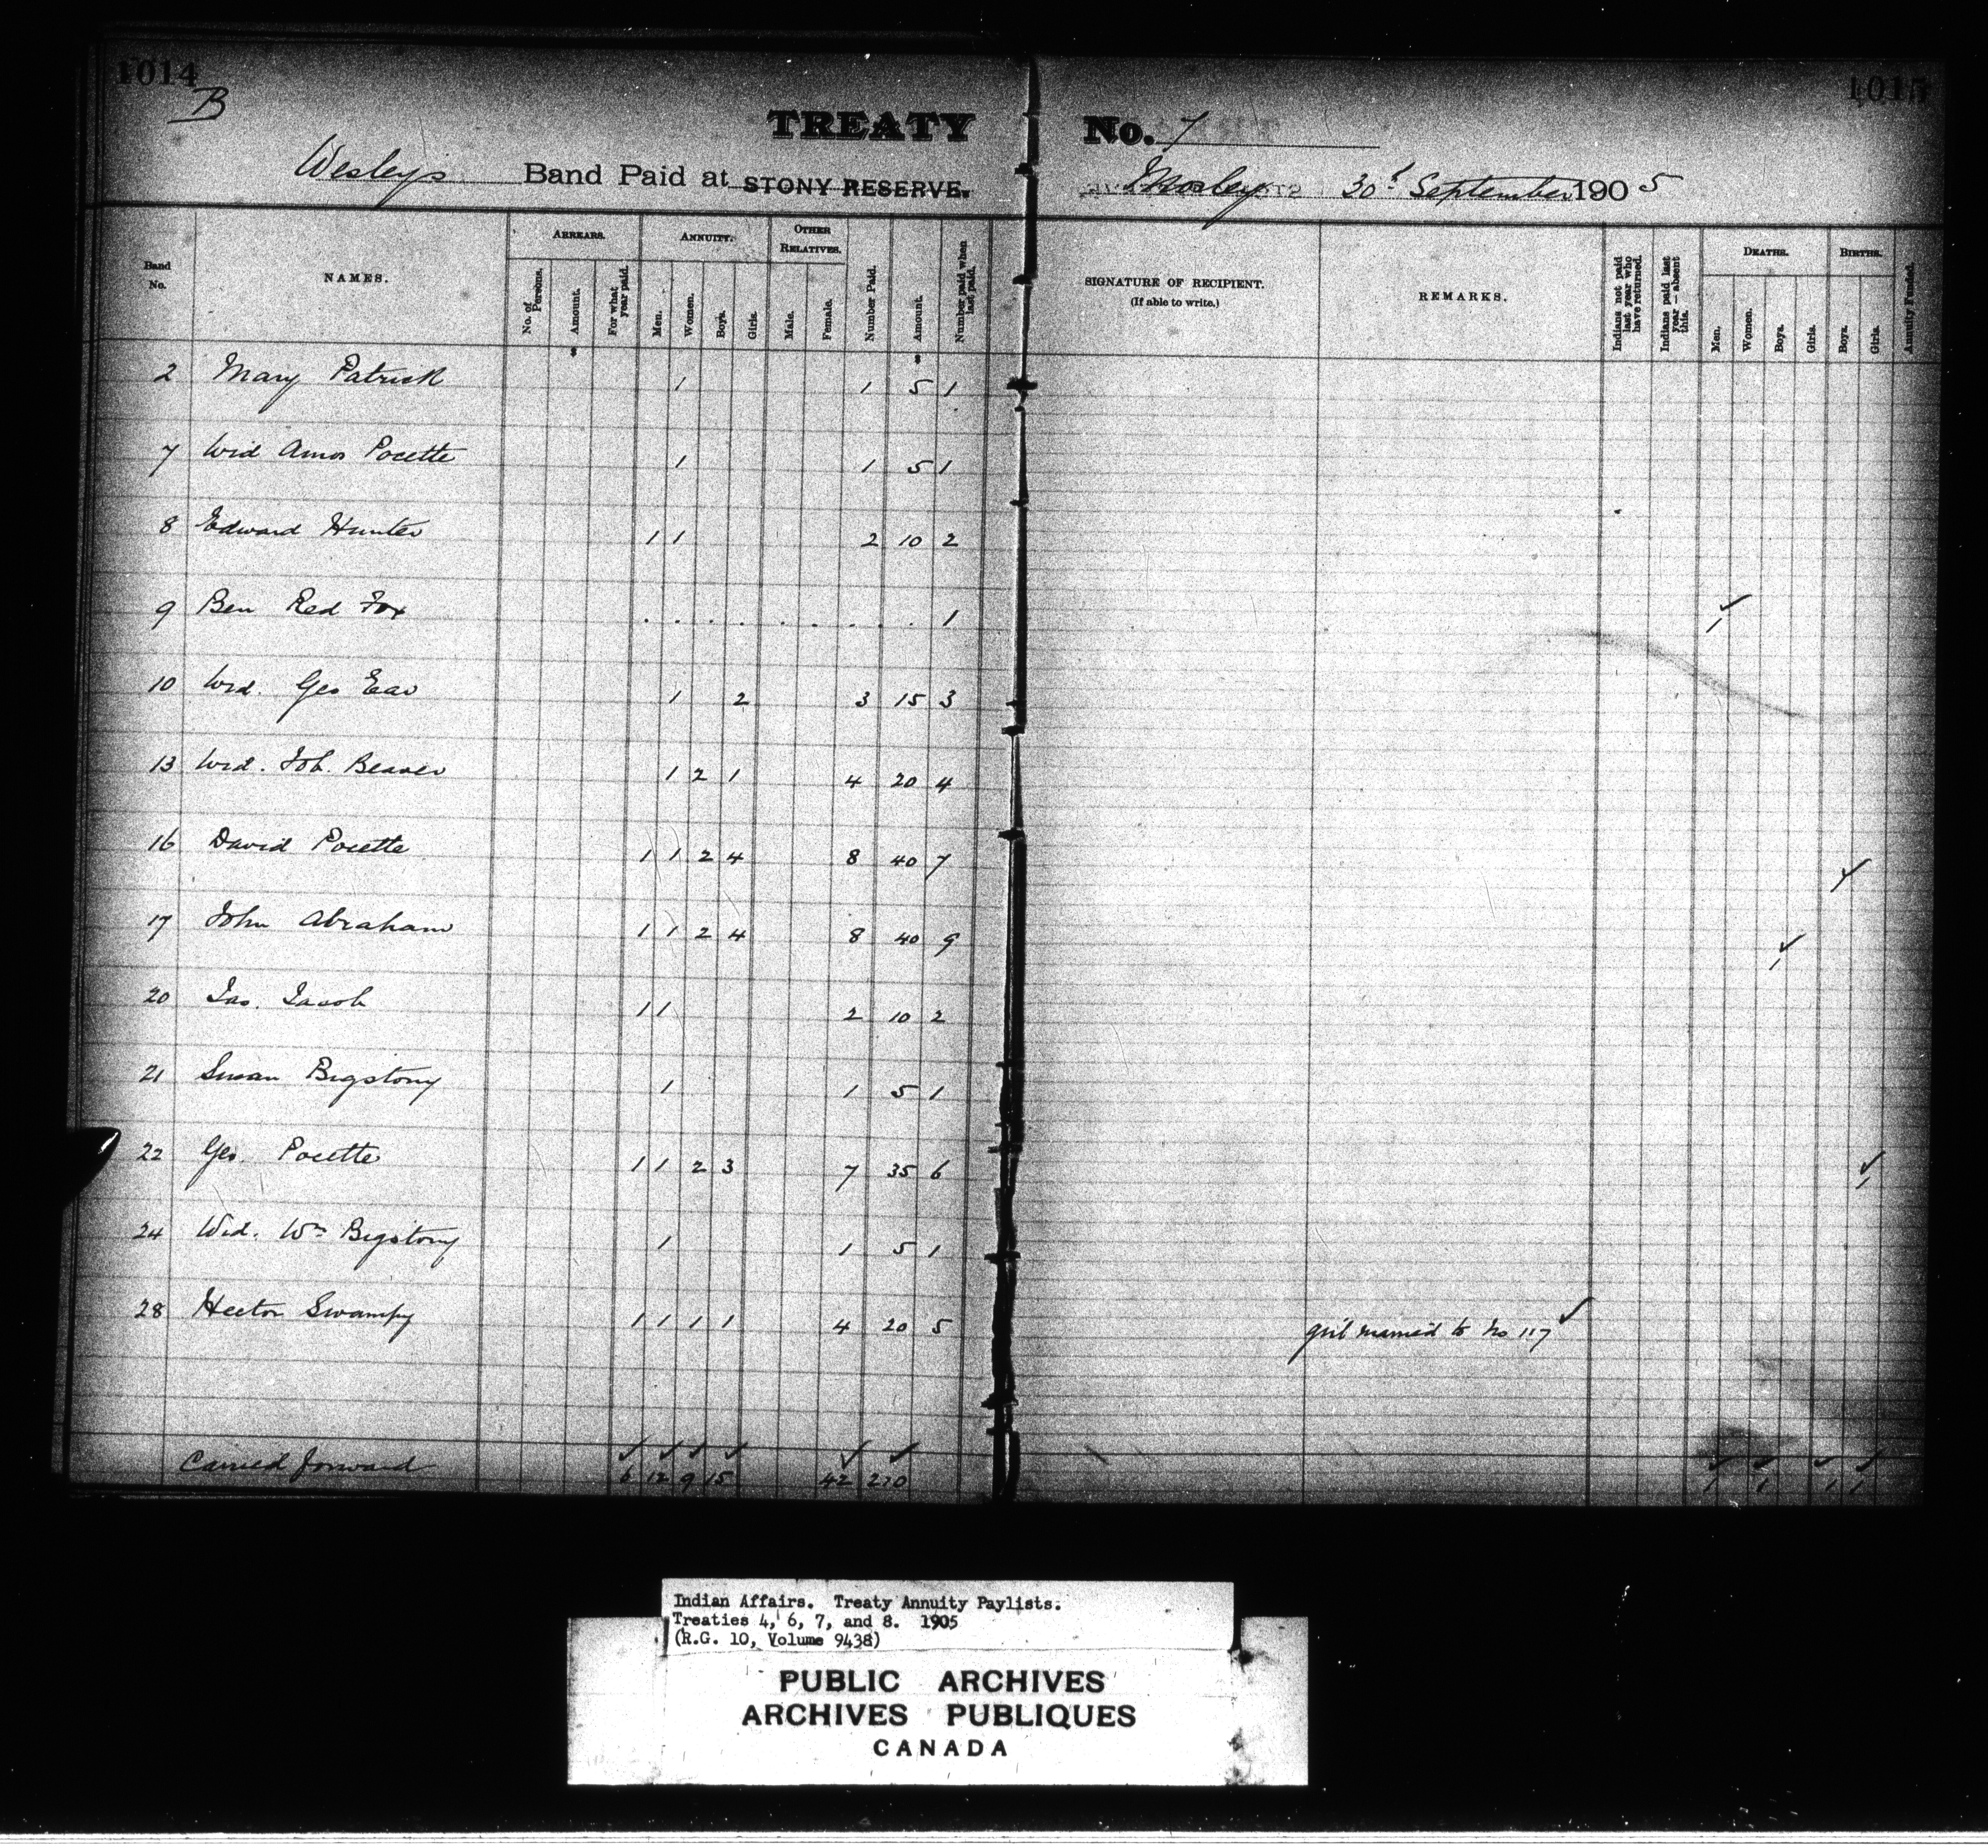 1014 1015
B
TREATY No. 7
Wesleys Band Paid at STONY RESERVE. Morley 30t September 1905
Band No. NAMES. ARREARS. ANNUITY. OTHER RELATIVES. Number Paid. Amount. Number paid when last paid. SIGNATURE OF RECIPIENT. (If able to write.) REMARKS. Indians not paid last year who have returned. Indians paid last year — absent this. DEATHS. BIRTHS. Annuity Funded.
No. of Persons. Amount. For what year paid. Men. Women. Boys. Girls. Male. Female. Men. Women. Boys. Girls. Boys. Girls.
2 Mary Patrick 1 1 5 1
7 Wid Amos Pocette 1 1 5 1
8 Edward Hunter 1 1 2 10 2
9 Ben Red Fox . . . . . . . . . 1 1
10 Wid. Geo Ear 1 2 3 15 3
13 Wid. Job. Beaver 1 2 1 4 20 4
16 David Pocette 1 1 2 4 8 40 7 ✓
17 John Abraham 1 1 2 4 8 40 9 1
20 Jas. Jacob 1 1 2 10 2
21 Susan Bigstony 1 1 5 1
22 Geo. Pocette 1 1 2 3 7 35 6 1
24 Wid. Wm Bigstony 1 1 5 1
28 Hector Swampy 1 1 1 1 4 20 5 girl married to No 117 ✓
Carried forward 6 12 9 15 42 210 1 1 1 1
Indian Affairs. Treaty Annuity Paylists.
Treaties 4, 6, 7, and 8. 1905
(R.G. 10, Volume 9438)
PUBLIC ARCHIVES
ARCHIVES PUBLIQUES
CANADA